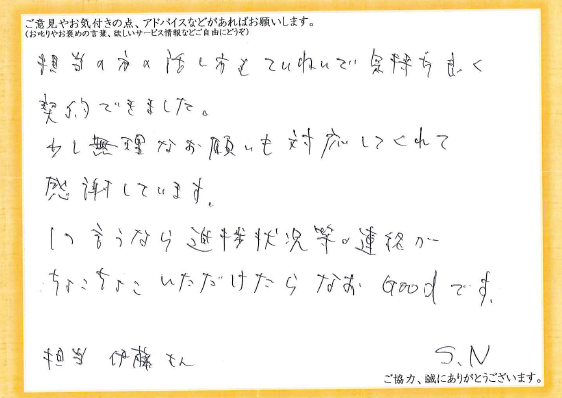 ご意見やお気付きの点、アドバイスなどがあればお願いします。
(お叱りやお褒めの言葉、欲しいサービス情報などご自由にどうぞ)
担当の方の話し方もていねいで気持ち良く
契約できました。
少し無理なお願いも対応してくれて
感謝しています。
1つ言うなら進捗状況等の連絡が
ちょこちょこいただけたらなお Goodです。
担当 伊藤さん
S.N
ご協力、誠にありがとうございます。